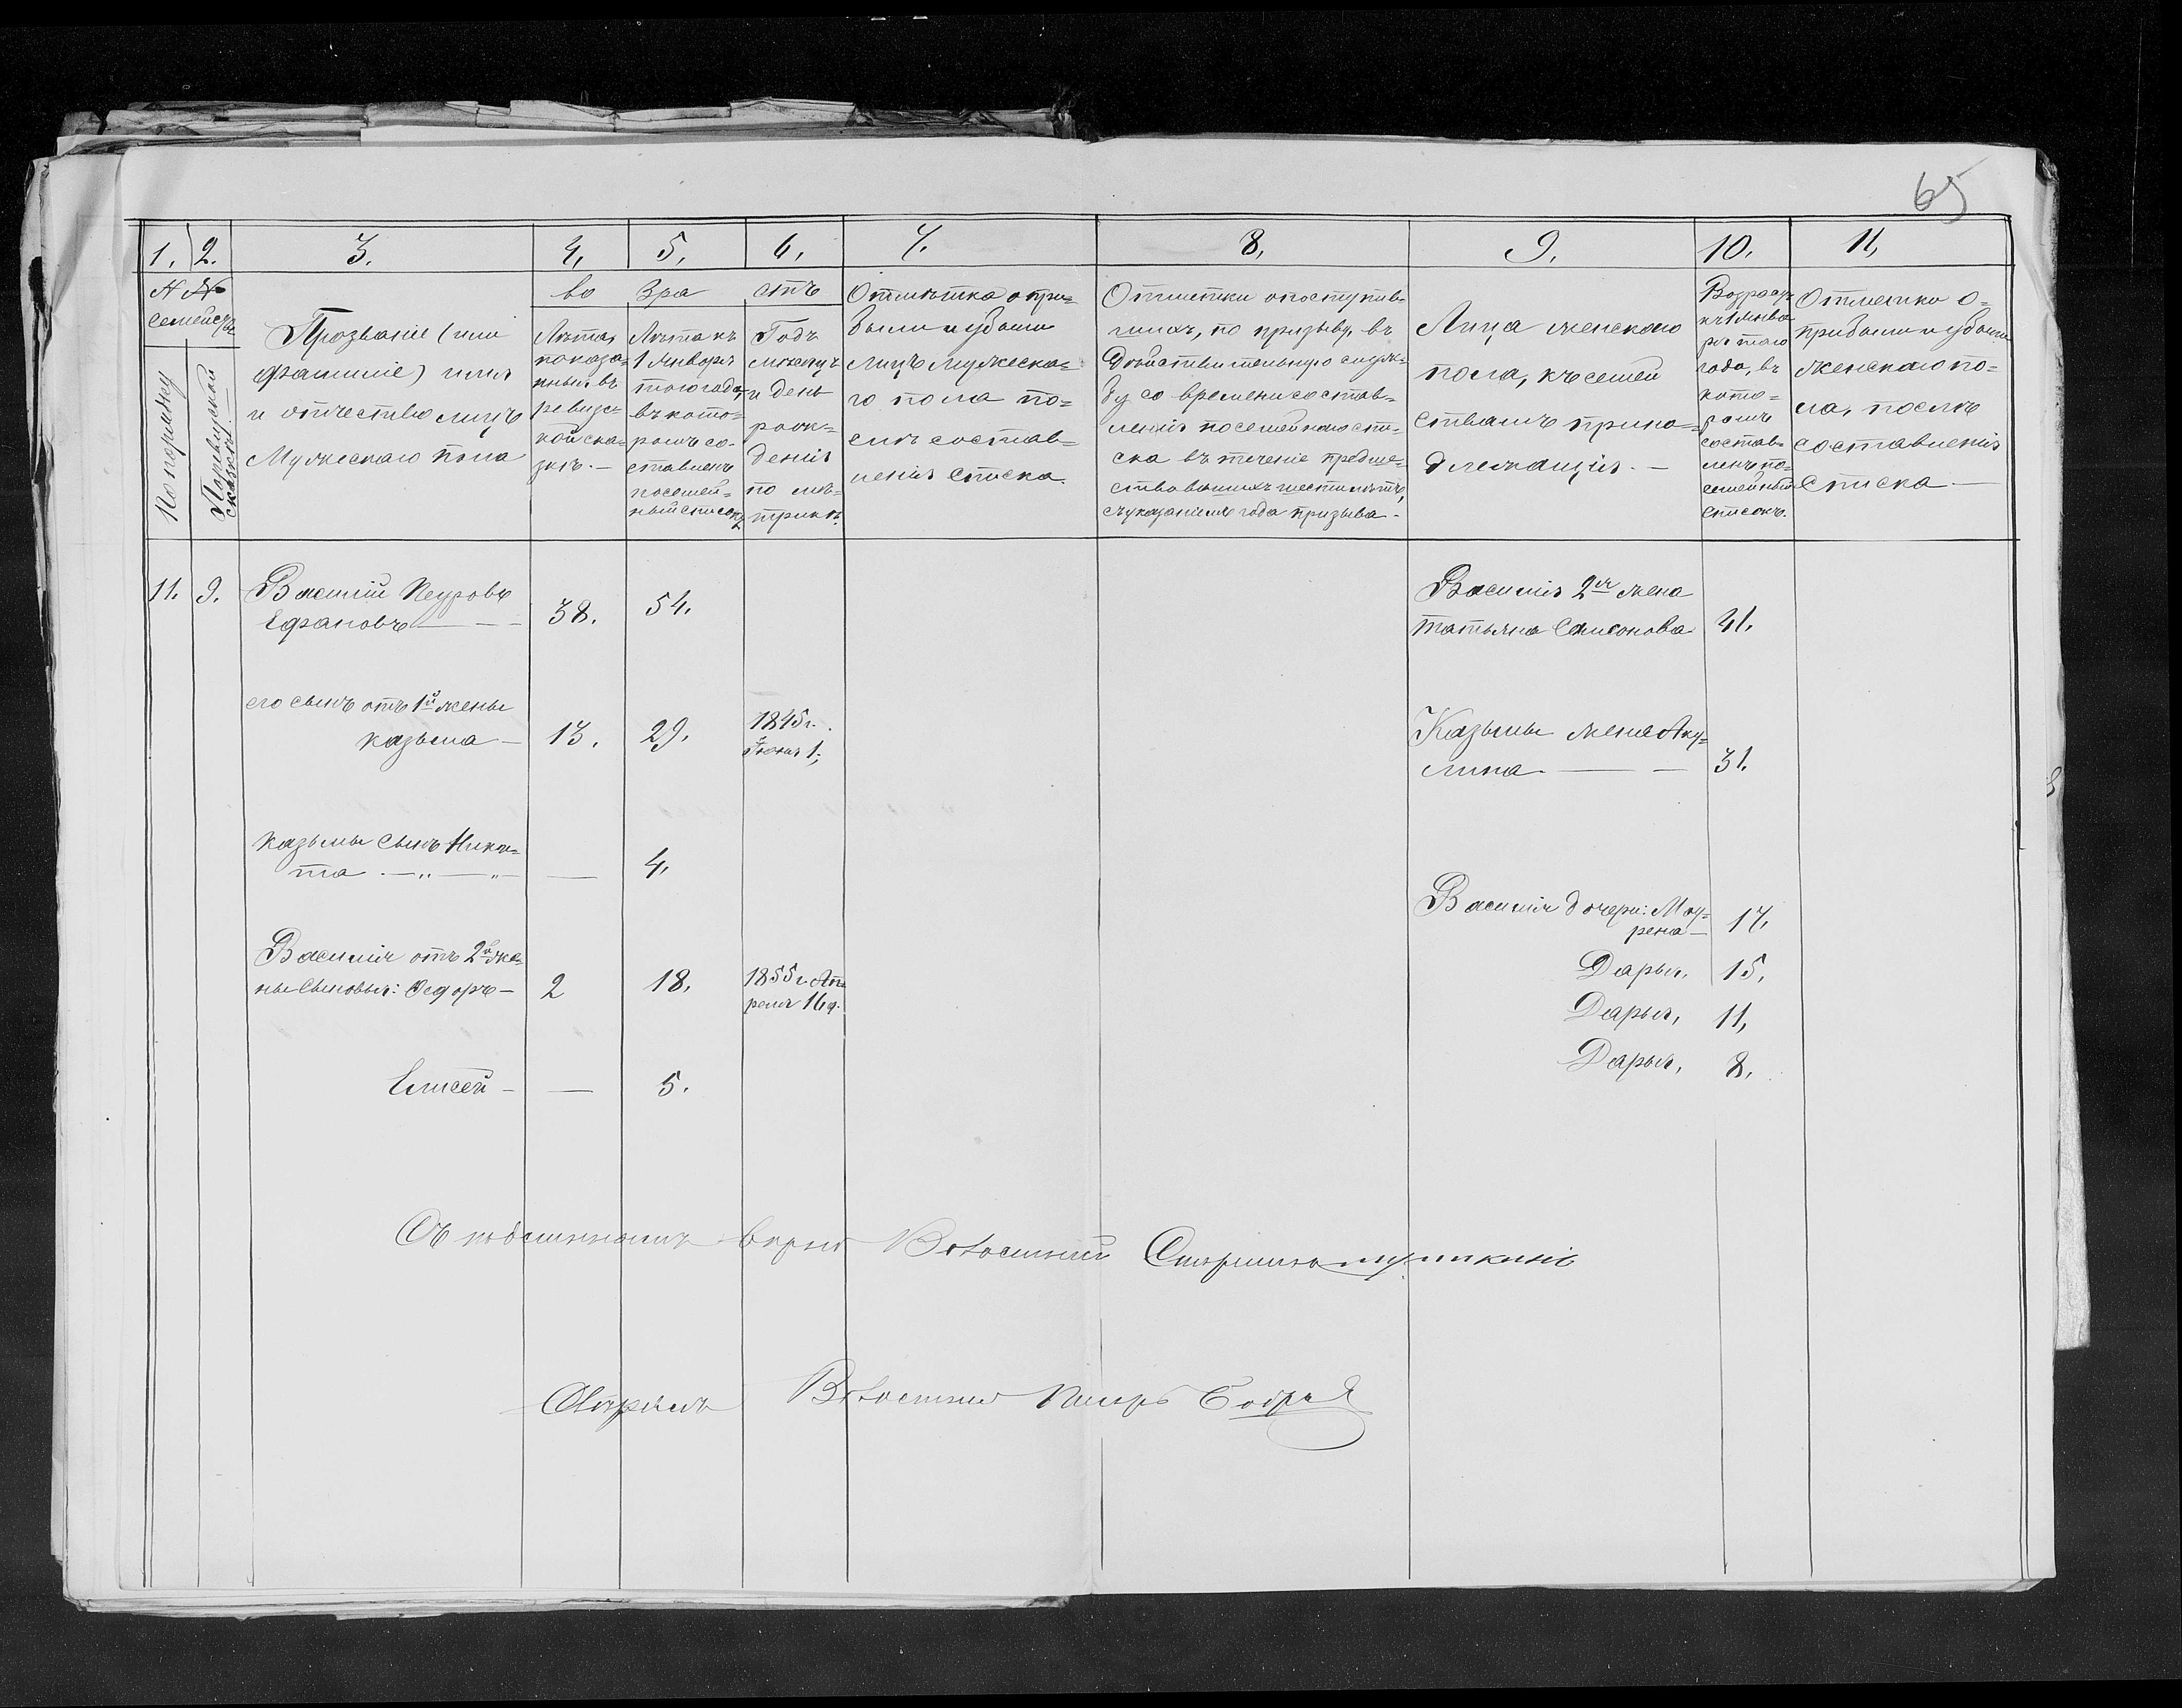 65
1. 2. 3. 4. 5. 6. 7. 8. 9. 10. 11.
№№
семействъ
По порядку
По ревизской
сказкѣ.
Прозваніе (или
фамиліе) имя
и отчество лицъ
Мужескаго пола
во зра стъ
Лѣта,
показа-
нныя въ
ревизс-
кой ска-
зкѣ. —
Лѣта къ
1 Января
того года,
въ кото-
ромъ со-
ставленъ
посемей-
ный списокъ
Годъ
мѣсяцъ
и день
рож-
денія
по ме-
трикѣ.
Отмѣтка о при-
были и убыли
лицъ мужеска-
го пола по-
слѣ состав-
ленія списка.
Отметки о поступив-
шихъ, по призыву, въ
Дѣйствительную служ-
бу со времени состав-
ленія посемейнаго спи-
ска въ теченіе предше-
ствовавшихъ шести лѣтъ,
съ указаніемъ года призыва.
Лица женскаго
пола, къ семей
ствамъ прина-
длежащія. —
Возрастъ
къ 1 Янва
ря того
года, въ
кото-
ромъ
состав-
ленъ по-
семейный
списокъ.
Отметка о-
прибыли и убыли
женскаго по-
ла, послѣ
составленія
списка —
11. 9. Василій Петровъ
Ефановъ — 38. 54.
Василія 2я жена
Татьяна Самсонова 41.
его сынъ отъ 1й жены
Казьма — 13. 29. 1845 г.
Іюня 1;
Казьмы жена Аку-
лина — 31.
Казьмы сынъ Ники-
та — „ — „ — — 4.
Василія дочери: Мау-
рена — 17.
Василія отъ 2й же-
ны сыновья: Федоръ — 2 18. 1855 г. Ап-
реля 16 д.
Дарья, 15.
Дарья, 11,
Дарья, 8.
Елисей — — 5.
Съ подлиннымъ верно Волостной Старшина
Сверялъ Волостной Писарь